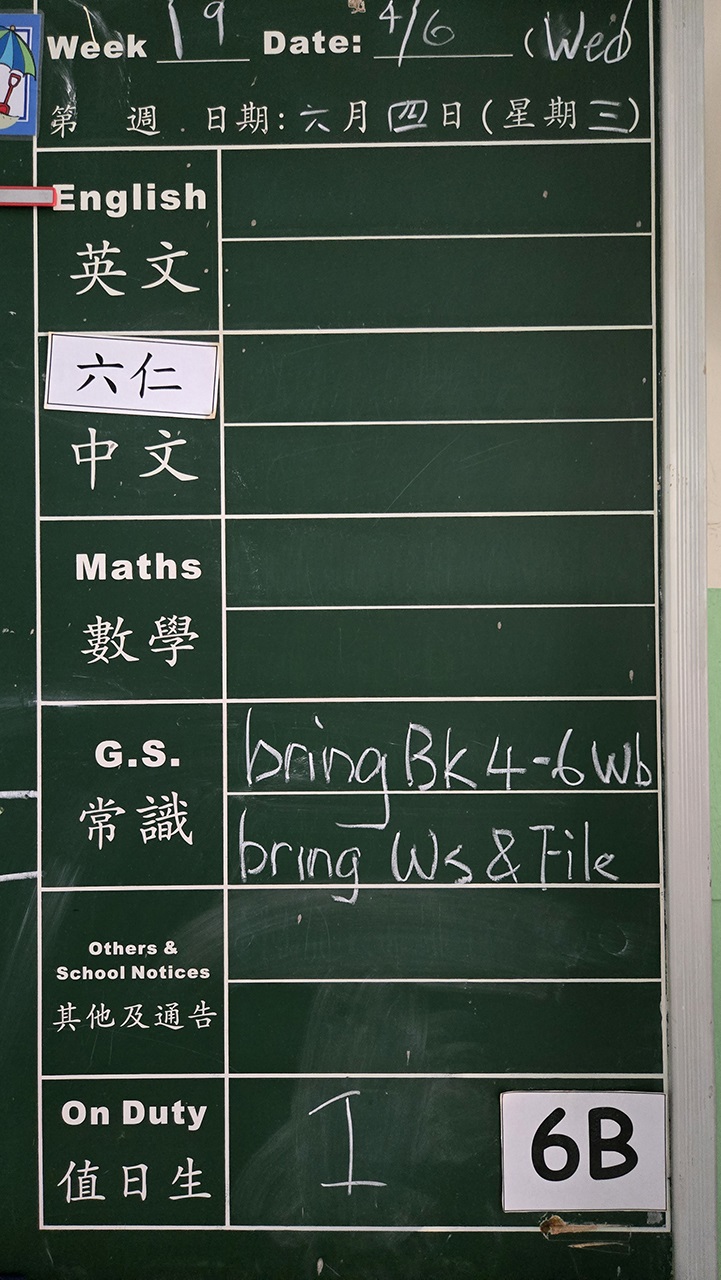 Week 19 Date: 4/6 (Wed)
第 週 日期: 六月四日(星期三)
English
英文
六仁
中文
Maths
數學
G.S. bring Bk 4-6 Wb
常識 bring Ws & File
Others &
School Notices
其他及通告
On Duty I 6B
值日生